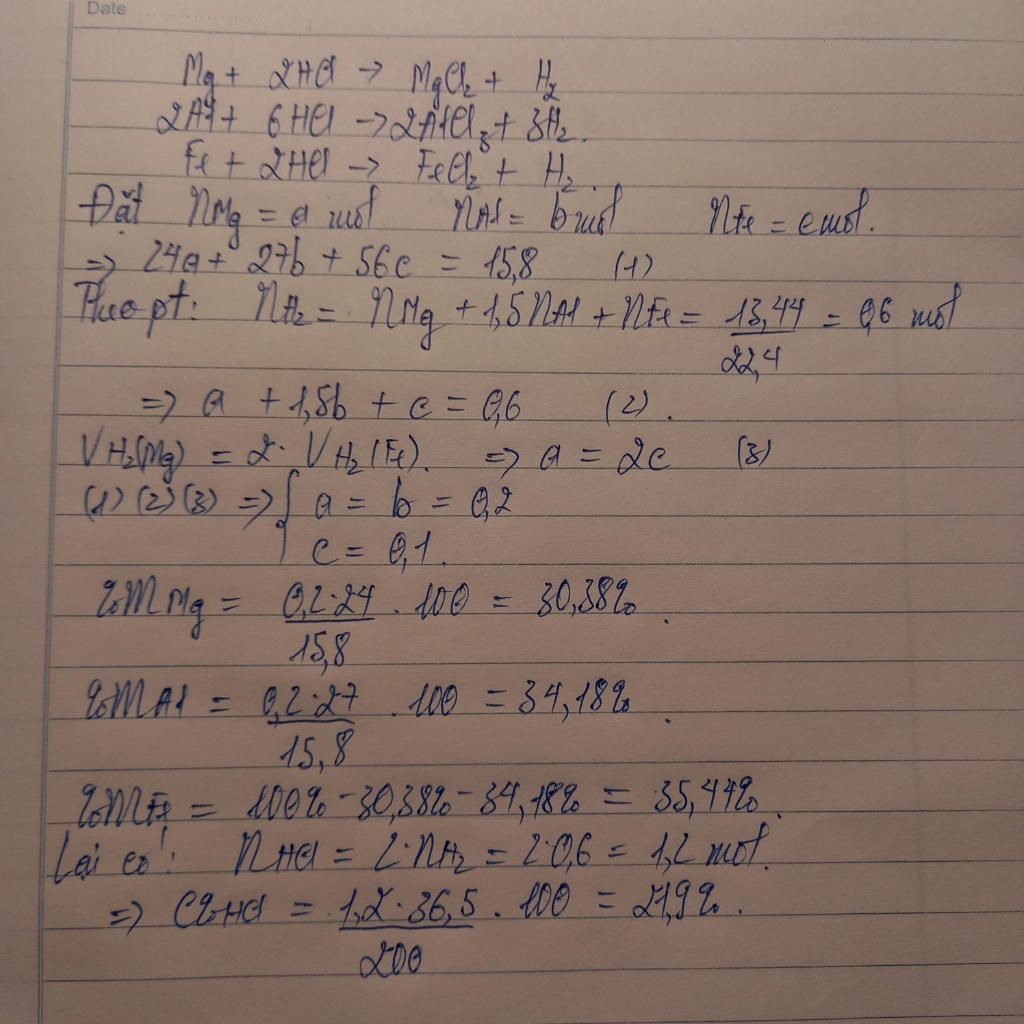 Date
Mg + 2HCl -> MgCl2 + H2
2Al + 6HCl -> 2AlCl3 + 3H2.
Fe + 2HCl -> FeCl2 + H2.
Đặt nMg = a mol nAl = b mol nFe = c mol.
=> 24a + 27b + 56c = 15,8 (1)
Theo pt: nH2 = nMg + 1,5nAl + nFe = 13,44/22,4 = 0,6 mol
=> a + 1,5b + c = 0,6 (2).
VH2(Mg) = 2. VH2(Fe). => a = 2c (3)
(1) (2) (3) => { a = b = 0,2
c = 0,1.
%mMg = 0,2.24/15,8 . 100 = 30,38%.
%mAl = 0,2.27/15,8 . 100 = 34,18%.
%mFe = 100% - 30,38% - 34,18% = 35,44%.
Lại có: nHCl = 2.nH2 = 2.0,6 = 1,2 mol.
=> C%HCl = 1,2.36,5/200 . 100 = 21,9%.